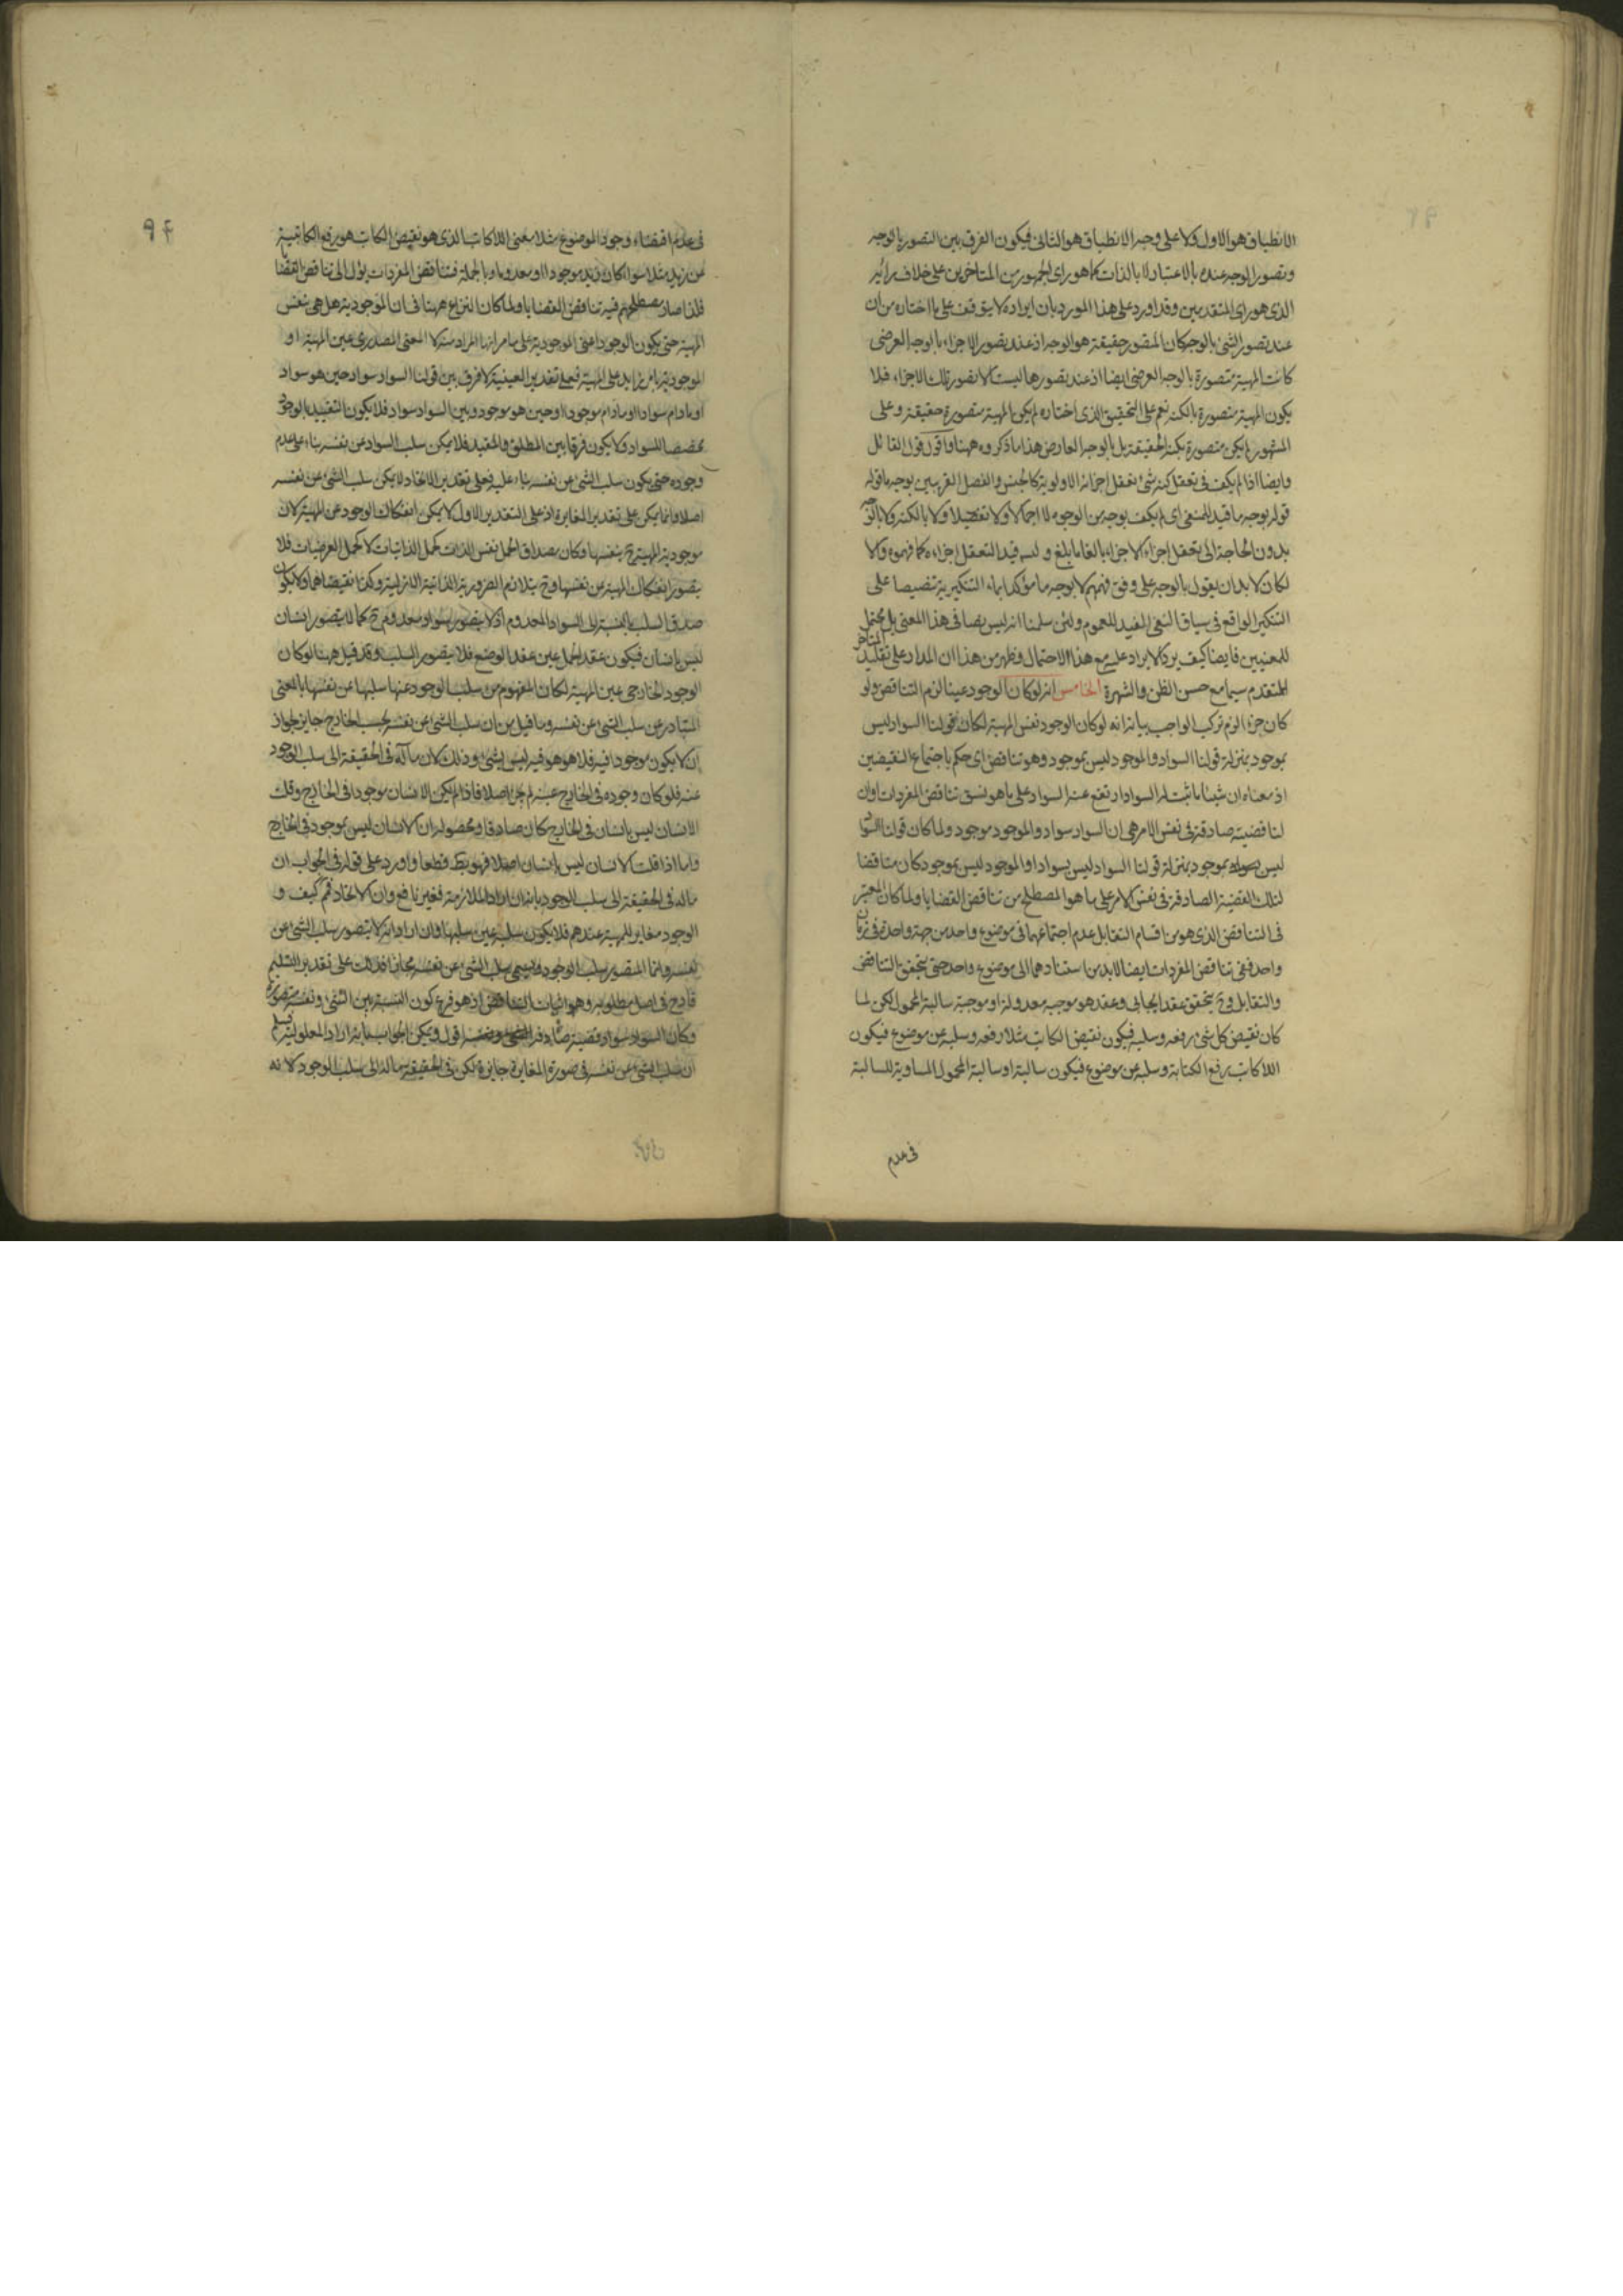 الانطباق هو الاول ولا على وجه الانطباق هو الثانى فيكون الفرق بين التصور بالوجه
وتصور الوجه عنده بالاعتبار لا بالذات كما هو راى الجمهور من المتاخرين على خلاف
الذى هو راى المتقدمين وقد اورد على هذا المورد بان ايراده لا يتوقف على ما اختاره من ان
عند تصور الشئ بالوجه كان المتصور حقيقة هو الوجه اذ عند تصور الاجزاء بالوجه العرضى
كانت المهية متصورة بالوجه العرضى ايضا اذ عند تصورها ليست الا تصور تلك الاجزاء فلا
يكون المهية متصورة بالكنه نعم على التحقيق الذى اختاره لم يكن المهية متصورة حقيقة وعلى
المشهور لم يكن متصورة بكنه الحقيقة بل بالوجه العارض هذا ما ذكروه ههنا واقول قول القائل
وايضا اذا لم يكف فى تعقل كنه شئ تعقل اجزائه الاولوية كالجنس والفصل القريبين بوجه ما قوله
قوله بوجه ما قيد للمنفى اى لم يكف بوجه من الوجوه لا اجمالا ولا تفصيلا ولا بالكنه ولا بالوجه
بدون الحاجة الى تعقل اجزاء الاجزاء بالغا ما بلغ وليس قيد التعقل اجزاءه كما فهموه والا
لكان لا بد ان يقول بالوجه على وفق فهمهم لا بوجه ما مؤكدا بماء التنكيرية تنصيصا على
التنكير الواقع فى سياق النفى المفيد للعموم ولئن سلمنا انه ليس نصا فى هذا المعنى بل يحتمل
للمعنيين فايضا كيف يرد الايراد عليه مع هذا الاحتمال وظهر من هذا ان المدار على تقليد المتاخر
المتقدم سيما مع حسن الظن والشهرة الخامس انه لو كان الوجود عينا لزم التناقض ولو
كان جزءا لزم تركب الواجب بيانه انه لو كان الوجود نفس المهية لكان قولنا السواد ليس
بموجود بمنزلة قولنا السواد والموجود ليس بموجود وهو تناقض اى حكم باجتماع النقيضين
اذ معناه ان شيئا ما ثبت له السواد ارتفع عنه السواد على ما هو نسق تناقض المفردات وان
لنا قضية صادقة فى نفس الامر هى ان السواد سواد والموجود موجود ولما كان قولنا السواد
ليس بموجود بمنزلة قولنا السواد ليس بسواد او الموجود ليس بموجود كان مناقضا
لتلك القضية الصادقة فى نفس الامر على ما هو المصطلح من تناقض القضايا ولما كان المعتبر
فى التناقض الذى هو من اقسام التقابل عدم اجتماعهما فى موضوع واحد من جهة واحدة فى زمان
واحد ففى تناقض المفردات ايضا لا بد من استنادهما الى موضوع واحد حتى يتحقق التناقض
والتقابل وح يتحقق عقد ايجابى وعقد هو موجبه معدولة او موجبة سالبة المحمول لكن لما
كان نقيض كل شئ رفعه وسلبه فيكون نقيض الكاتب مثلا رفعه وسلبه عن موضوع فيكون
اللاكاتب رفع الكتابة وسلبه عن موضوع فيكون سالبة او سالبة المحمول المساوية للسالبة
فى عدم
٩۴
فى عدم اقتضاء وجود الموضوع مثلا معنى اللاكاتب الذى هو نقيض الكاتب هو رفع الكاتبية
عن زيد مثلا سواء كان زيد موجودا او معدوما وبالجملة فتناقض المفردات يؤل الى تناقض القضايا
فلذا صار مصطلحهم فيه تناقض القضايا ولما كان النزاع ههنا فى ان الموجودية هل هى نفس
المهية حتى يكون الوجود اعنى الموجودية على ما مر انها المراد منه لا المعنى المصدرى عين المهية او
الموجودية بامر زايد على المهية فعلى تقدير العينية لا فرق بين قولنا السواد سواد حين هو سواد
او ما دام سوادا او ما دام موجودا او حين هو موجود وبين السواد سواد فلا يكون التقييد بالوجود
مخصصا للسواد ولا يكون فرقا بين المطلق والمقيد فلا يمكن سلب السواد عن نفسه بناء على عدم
وجوده حتى يكون سلب الشئ عن نفسه بناء عليه فعلى تقدير الاتحاد لا يمكن سلب الشئ عن نفسه
اصلا وانما يمكن على تقدير المغايرة اذ على التقدير الاول لا يمكن انفكاك الوجود عن المهية لان
موجودية المهية ح بنفسها وكان مصداق الحمل نفس الذات كحمل الذاتيات لا كحمل العرضيات فلا
يتصور انفكاك المهية عن نفسها وح يتلازم الضرورية الذاتية الازلية وكذا نقيضاهما ولا يكون
صدق السلب بالنسبة الى السواد المعدوم اذ لا يتصور سواد معدوم ح كما لا يتصور انسان
ليس بانسان فيكون عقد الحمل عين عقد الوضع فلا يتصور السلب وقد قيل ههنا لو كان
الوجود الخارجى عين المهية لكان المفهوم من سلب الوجود عنها سلبها عن نفسها بالمعنى
المتبادر من سلب الشئ عن نفسه وما قيل من ان سلب الشئ عن نفسه بحسب الخارج جايز لجواز
ان لا يكون موجودا فيه فلا هو هو فيه ليس بشئ وذلك لان مآله فى الحقيقة الى سلب الوجود
عنه فلو كان وجوده فى الخارج عينه لم يجز اصلا فاذا لم يكن الانسان موجودا فى الخارج وقلت
الانسان ليس بانسان فى الخارج كان صادقا ومحصوله ان الانسان ليس بموجود فى الخارج
واما اذا قلت الانسان ليس بانسان اصلا فهو قطعا واورد على قوله فى الجواب ان
مآله فى الحقيقة الى سلب الوجود بانه ان اراد الملازمة فغير نافع وان الاتحاد فمم كيف و
الوجود مغاير للمهية عندهم فلا يكون سلبه عين سلبها وان اراد انه لا يتصور سلب الشئ عن
نفسه وانما المتصور سلب الوجود ويسمى سلب الشئ عن نفسه مجازا فذلك على تقدير التسليم
قادح فى اصل مطلوبه وهو اثبات التناقض اذ هو فرع كون النسبة بين الشئ ونفسه متصورة
وكان السواد سواد قضية صادقة اقول ويمكن الجواب بانه اراد المعلولية
ان سلب الشئ عن نفسه فى صورة المغايرة جايزة لكن فى الحقيقة مآله الى سلب الوجود لانه